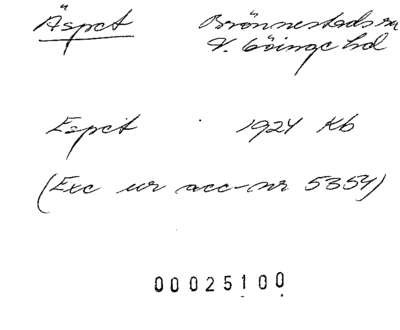 Äspet Brönnestads sn
V. Göinge hd
Espet 1924 Kb
(Exc ur acc-nr 5354)
00025100